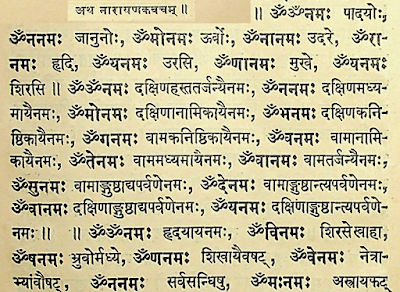 अथ नारायणकवचम् ॥
॥ ॐॐनमः पादयोः,
ॐननमः जानुनोः, ॐमोनमः ऊर्वोः, ॐनानमः उदरे, ॐरा-
नमः हृदि, ॐयनमः उरसि, ॐणानमः मुखे, ॐयनमः
शिरसि ॥ ॐॐनमः दक्षिणहस्ततर्जन्यैनमः, ॐननमः दक्षिणमध्य-
मायैनमः, ॐमोनमः दक्षिणानामिकायैनमः, ॐभनमः दक्षिणकनि-
ष्ठिकायैनमः, ॐगनमः वामकनिष्ठिकायैनमः, ॐवनमः वामानामि-
कायैनमः, ॐतेनमः वाममध्यमायैनमः, ॐवानमः वामतर्जन्यैनमः,
ॐसुनमः वामाङ्गुष्ठाद्यपर्वणेनमः, ॐदेनमः वामाङ्गुष्ठान्त्यपर्वणेनमः,
ॐवानमः दक्षिणाङ्गुष्ठाद्यपर्वणेनमः, ॐयनमः दक्षिणाङ्गुष्ठान्त्यपर्वणे-
नमः ॥ ॥ ॐॐनमः हृदयायनमः, ॐविनमः शिरसेस्वाहा,
ॐषनमः भ्रुवोर्मध्ये, ॐणनमः शिखायैवषट्, ॐवेनमः नेत्रा-
भ्यांवौषट्, ॐननमः सर्वसन्धिषु, ॐमःनमः अस्त्रायफट्